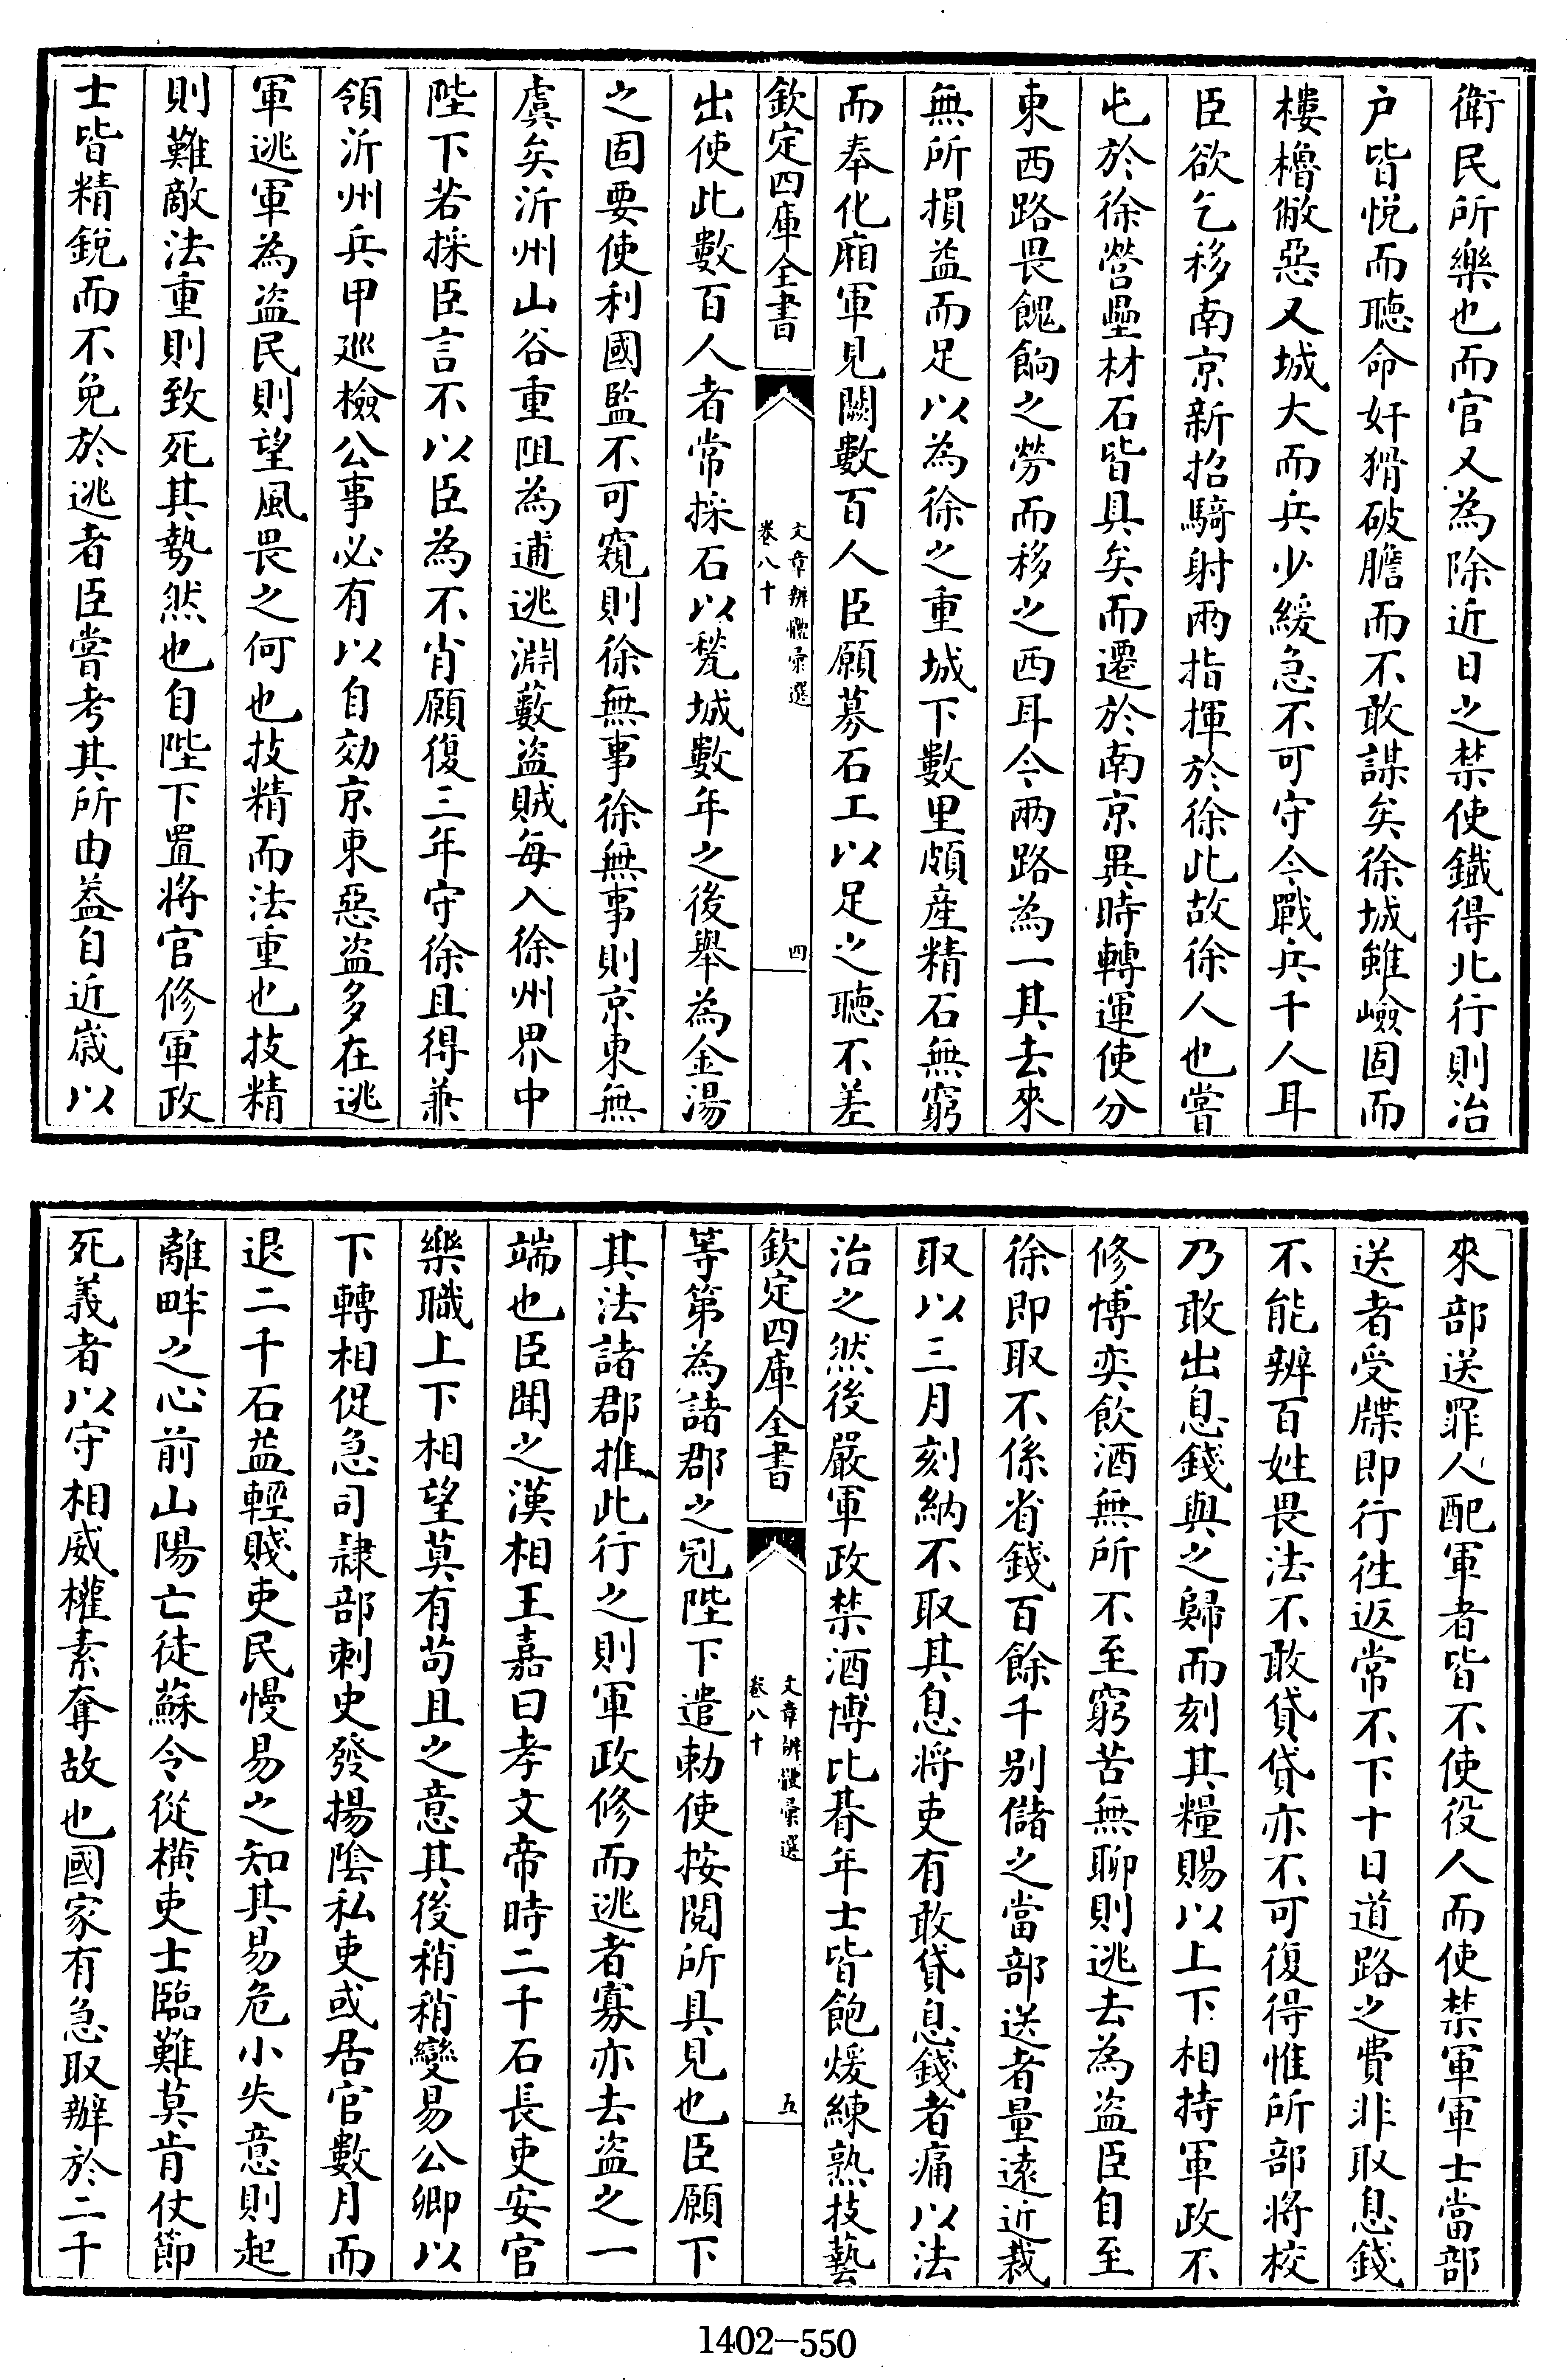 衛民所樂也而官又為除近日之禁使鐵得北行則冶
户皆悦而聽命奸猾破膽而不敢謀矣徐城雖嶮固而
樓櫓敝惡又城大而兵少緩急不可守今戰兵千人耳
臣欲乞移南京新招騎射兩指揮於徐此故徐人也嘗
屯於徐營壘材石皆具矣而遷於南京異時轉運使分
東西路畏餽餉之勞而移之西耳今兩路為一其去來
無所損益而足以為徐之重城下數里頗産精石無窮
而奉化廂軍見闕數百人臣願募石工以足之聽不差
欽定四庫全書
文章辨體彙選
卷八十
四
出使此數百人者常採石以甃城數年之後舉為金湯
之固要使利國監不可窺則徐無事徐無事則京東無
虞矣沂州山谷重阻為逋逃淵藪盗賊每入徐州界中
陛下若採臣言不以臣為不肖願復三年守徐且得兼
領沂州兵甲廵檢公事必有以自効京東惡盗多在逃
軍逃軍為盗民則望風畏之何也技精而法重也技精
則難敵法重則致死其勢然也自陛下置將官修軍政
士皆精鋭而不免於逃者臣嘗考其所由葢自近嵗以
來部送罪人配軍者皆不使役人而使禁軍軍士當部
送者受牒即行往返常不下十日道路之費非取息錢
不能辨百姓畏法不敢貸貸亦不可復得惟所部將校
乃敢出息錢與之歸而刻其糧賜以上下相持軍政不
修博奕飲酒無所不至窮苦無聊則逃去為盗臣自至
徐即取不係省錢百餘千别儲之當部送者量遠近裁
取以三月刻納不取其息將吏有敢貸息錢者痛以法
治之然後嚴軍政禁酒博比朞年士皆飽煖練熟技藝
欽定四庫全書
文章辨體彙選
卷八十
五
等第為諸郡之冠陛下遣勅使按閲所具見也臣願下
其法諸郡推此行之則軍政修而逃者寡亦去盗之一
端也臣聞之漢相王嘉曰孝文帝時二千石長吏安官
樂職上下相望莫有苟且之意其後稍稍變易公卿以
下轉相促急司隷部刺史發揚隂私吏或居官數月而
退二千石益輕賤吏民慢易之知其易危小失意則起
離畔之心前山陽亡徒蘇令從横吏士臨難莫肯仗節
死義者以守相威權素奪故也國家有急取辦於二千
1402-550